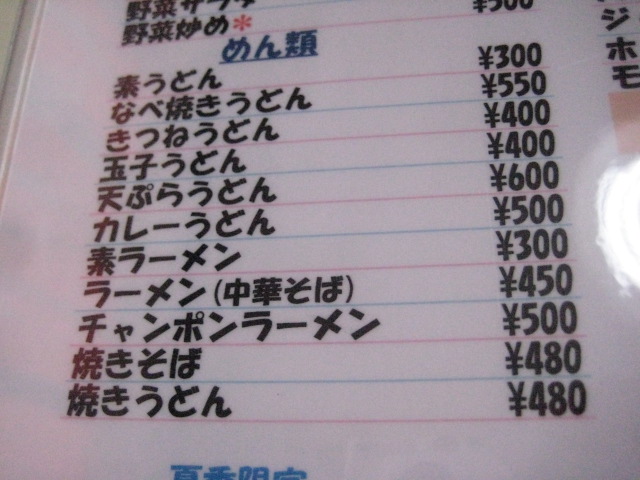 野菜サラダ
野菜炒め*
めん類
素うどん ¥300
なべ焼きうどん ¥550
きつねうどん ¥400
玉子うどん ¥400
天ぷらうどん ¥600
カレーうどん ¥500
素ラーメン ¥300
ラーメン(中華そば) ¥450
チャンポンラーメン ¥500
焼きそば ¥480
焼きうどん ¥480
夏季限定
ジ
ホ
モ